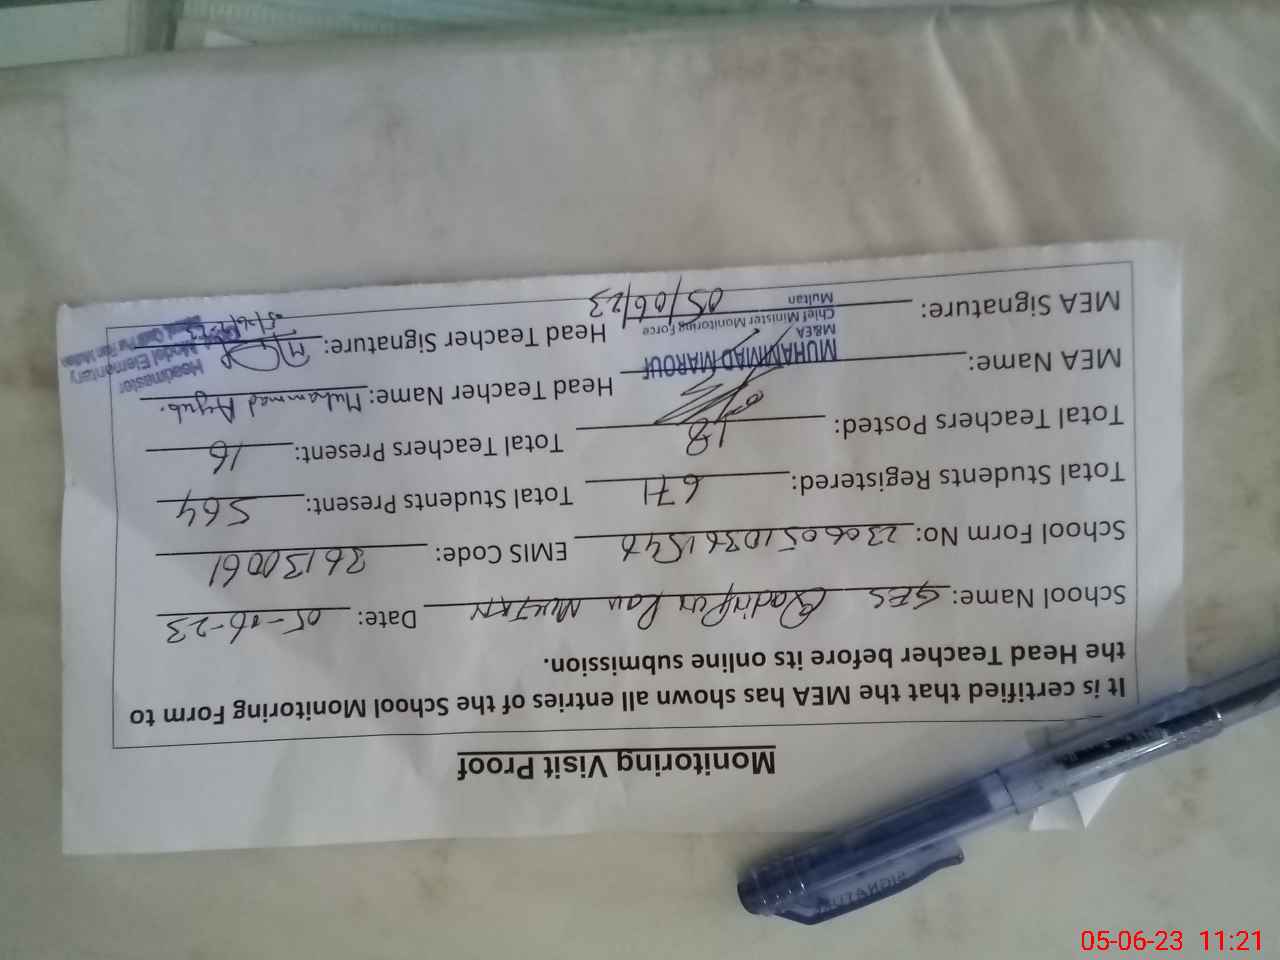 Monitoring Visit Proof
It is certified that the MEA has shown all entries of the School Monitoring Form to
the Head Teacher before its online submission.
School Name: GES Qadirpur Ran MULTAN Date: 05-06-23
School Form No: 23060510361546 EMIS Code: 36130061
Total Students Registered: 671 Total Students Present: 564
Total Teachers Posted: 18 Total Teachers Present: 16
MEA Name: MUHAMMAD MAROUF Head Teacher Name: Muhammad Ayub.
M&EA
Chief Minister Monitoring Force
Multan
MEA Signature: 05/06/23 Head Teacher Signature:
Headmaster
Model Elementary
SIGNATURE
05-06-23 11:21